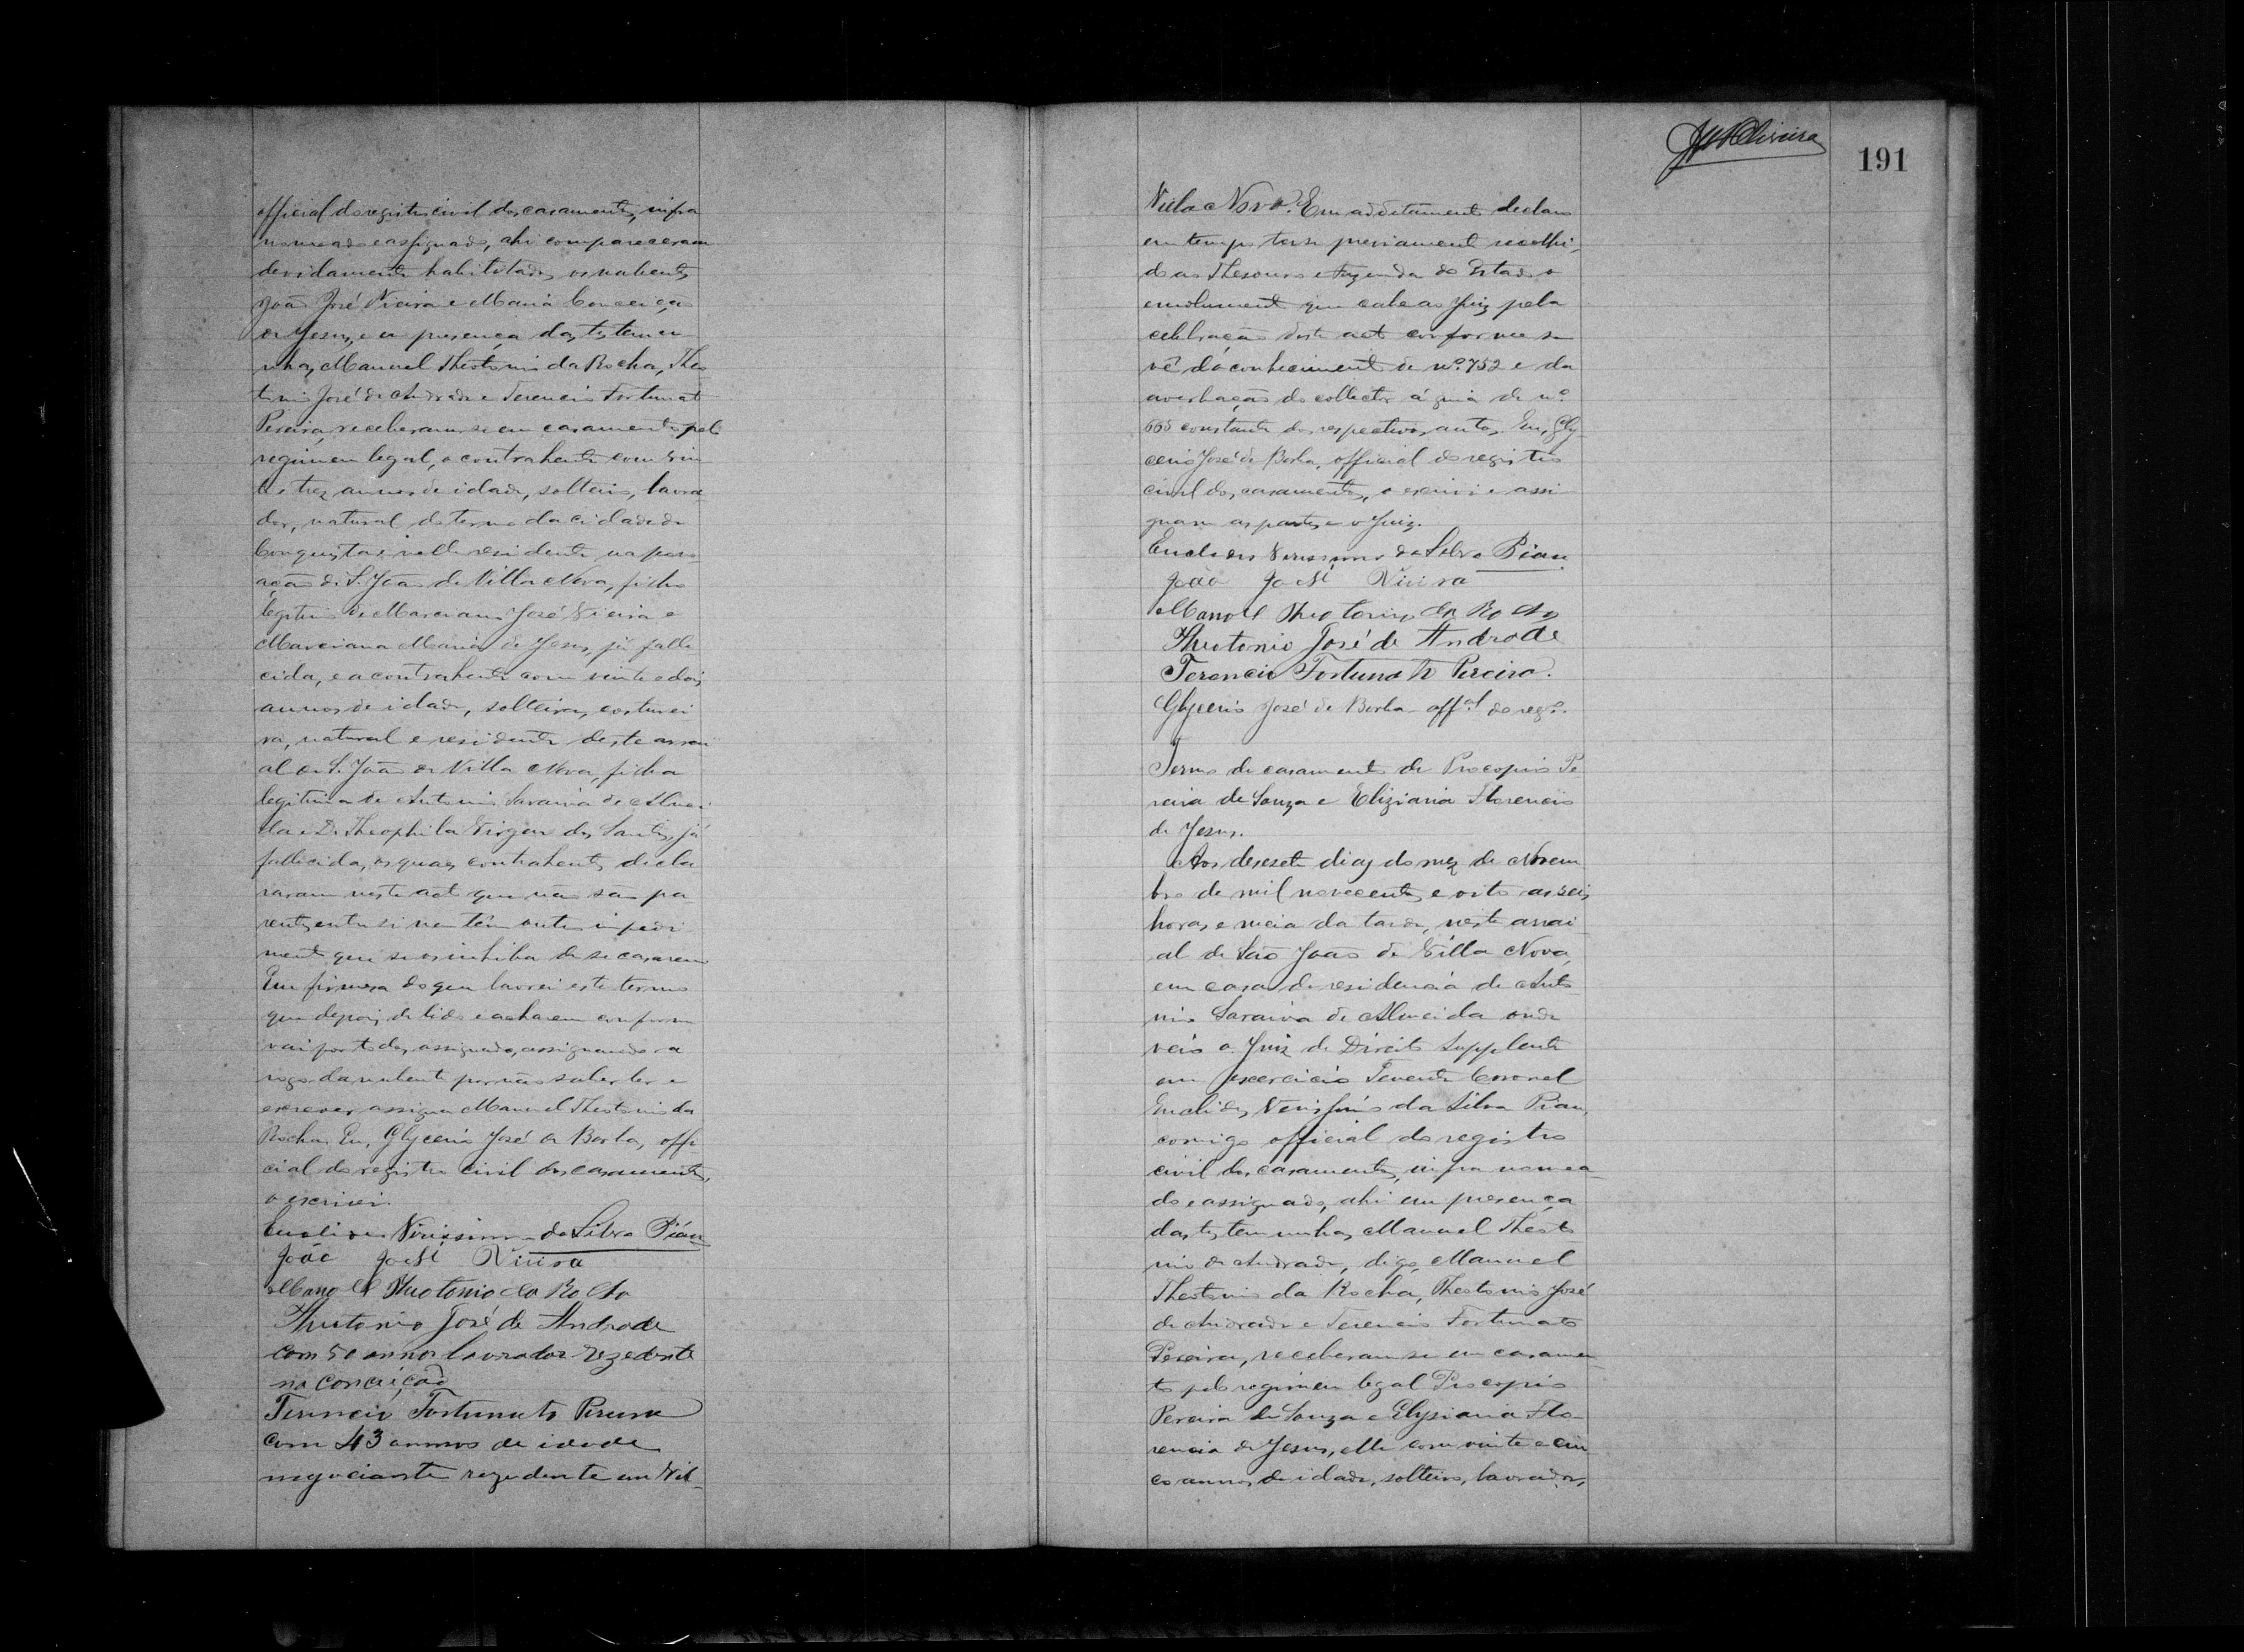 official do registro civil dos casamentos, infra
nomeado e assignado, ahi compareceram
devidamente habilitados os nubentes
João José Vieira e Maria Conceição
de Jesus, e em presença das testemu
nhas, Manuel Theotonio da Rocha, Theo
tonio José de Andrade e Terencio Fortunato
Pereira, receberam-se em casamento pelo
regimen legal, o contrahente com vin
te e trez annos de idade, solteiro, lavra
dor, natural do termo da cidade de
Conquista e nelle residente na pov
ação de S. João de Villa Nova, filho
legitimo de Marciano José Vieira e
Marciana Maria de Jesus, já falle
cida, e a contrahente com vinte e dois
annos de idade, solteira, costurei
ra, natural e residente deste arrai
al de S. João de Villa Nova, filha
legitima de Antonio Saraiva de Almei
da e D. Theophila Virgem dos Santos, já
fallecida, os quaes contrahentes decla
raram neste acto que não são pa
rentes entre si nem têm outro impedi
mento que os inhiba de se casarem
Em firmeza do que lavrei este termo
que depois de lido e acharem conforme
vai por todos assignado, assignando a
rogo da nubente por não saber ler e
escrever assigna Manuel Theotonio da
Rocha. Eu, Glycerio José de Borba, offi
cial do registro civil dos casamentos,
o escrivi.
Euclides Virissimo da Silva Pian
João José Vieira
Manoel Theotonio da Rocha
Theotonio José de Andrade
com 50 annos lavrador rezedente
na Conceição
Terencio Fortunato Pereira
com 43 annos de idade
negociante rezedente em Vil-
JMOliveira
191
Villa Nova. Em additamento declaro
em tempo ter-se previamente recolhi-
do ao Thesouro e Fazenda do Estado o
emolumento que cabe ao Juiz pela
celebração deste acto conforme se
vê do conhecimento de nº 752 e da
averbação do collector á guia de nº
665 constante dos respectivos autos. Eu, Gly
cerio José de Borba, official do registro
civil dos casamentos, o escrivi e assi
gnam as partes e o Juiz.
Euclides Verissimo da Silva Pian
João José Vieira
Manoel Theotonio da Rocha
Theotonio José de Andrade
Terencio Fortunato Pereira.
Glycerio José de Borba off.al do reg.o
Termo de casamento de Procopio Pe
reira de Souza e Eliziaria Florencia
de Jesus.
Aos desesete dias do mez de Novem
bro de mil novecentos e oito as seis
horas e meia da tarde, neste arrai
al de São João de Villa Nova,
em casa de residencia de Anto
nio Saraiva de Almeida onde
veio o Juiz de Direito Supplente
em exercicio Tenente Coronel
Euclides Verissimo da Silva Pian,
comigo official do registro
civil dos casamentos, infra nomea-
do e assignado, ahi em presença
das testemunhas Manuel Theoto
nio de Andrade, digo, Manuel
Theotonio da Rocha, Theotonio José
de Andrade e Terencio Fortunato
Pereira, receberam-se em casamen-
to pelo regimen legal Procopio
Pereira de Souza e Elysiaria Flo-
rencia de Jesus, elle com vinte e cin
co annos de idade, solteiro, lavrador,